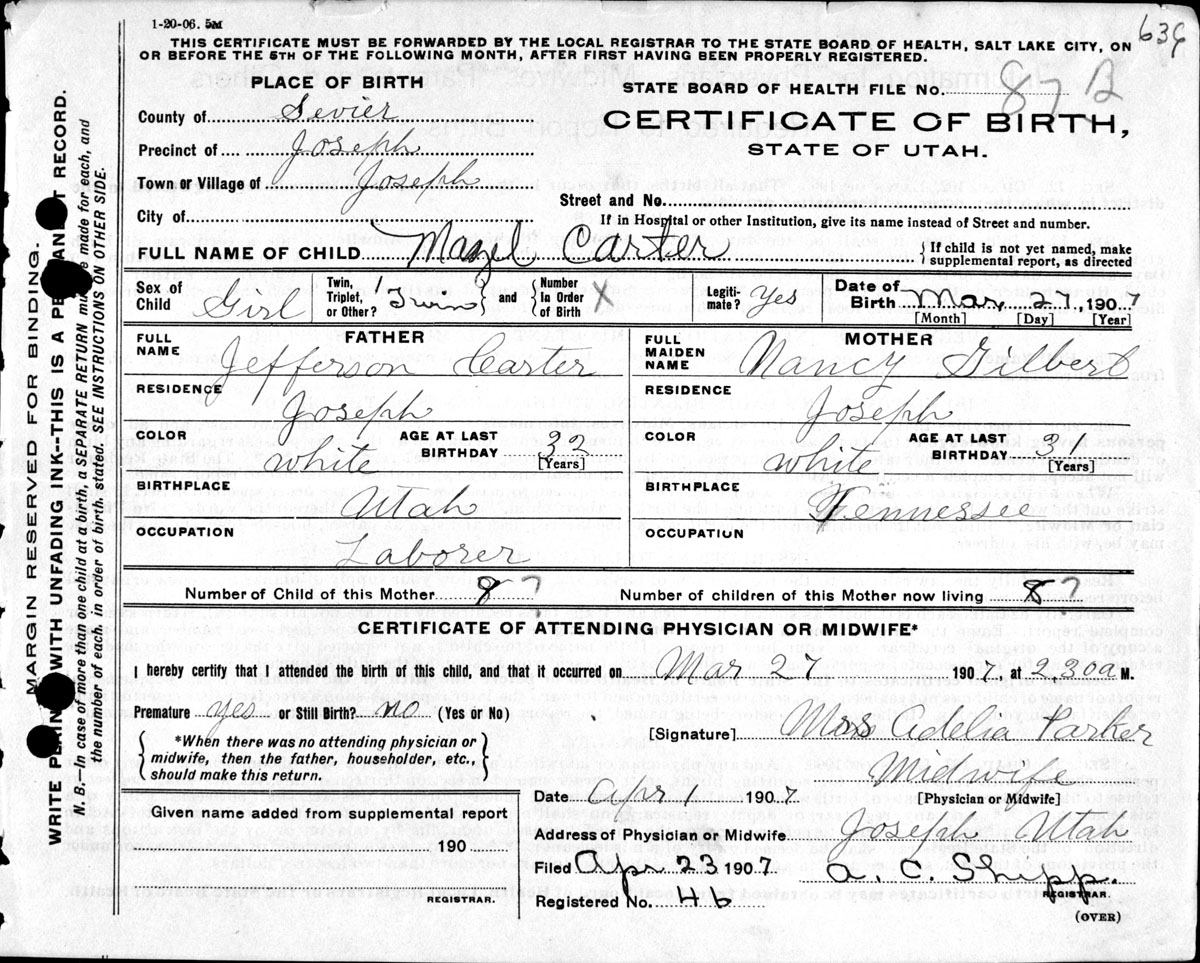 1-20-06. 5M
639
THIS CERTIFICATE MUST BE FORWARDED BY THE LOCAL REGISTRAR TO THE STATE BOARD OF HEALTH, SALT LAKE CITY, ON
OR BEFORE THE 5TH OF THE FOLLOWING MONTH, AFTER FIRST HAVING BEEN PROPERLY REGISTERED.
PLACE OF BIRTH
County of Sevier
Precinct of Joseph
Town or Village of Joseph
City of
STATE BOARD OF HEALTH FILE No. 87 B
CERTIFICATE OF BIRTH,
STATE OF UTAH.
Street and No.
If in Hospital or other Institution, give its name instead of Street and number.
FULL NAME OF CHILD Mazel Carter { If child is not yet named, make
supplemental report, as directed
Sex of Child Girl Twin, Triplet, or Other? Twin } and { Number In Order of Birth X Legiti-mate? Yes Date of Birth Mar 27, 1907
[Month] [Day] [Year]
FATHER
FULL NAME Jefferson Carter
RESIDENCE
Joseph
COLOR white AGE AT LAST BIRTHDAY 32
[Years]
BIRTHPLACE
Utah
OCCUPATION
Laborer
MOTHER
FULL MAIDEN NAME Nancy Gilbert
RESIDENCE
Joseph
COLOR white AGE AT LAST BIRTHDAY 31
[Years]
BIRTHPLACE
Tennessee
OCCUPATION
Number of Child of this Mother 8 ? Number of children of this Mother now living 8 ?
CERTIFICATE OF ATTENDING PHYSICIAN OR MIDWIFE*
I hereby certify that I attended the birth of this child, and that it occurred on Mar 27 1907, at 230a M.
Premature yes or Still Birth? no (Yes or No)
{ *When there was no attending physician or
midwife, then the father, householder, etc.,
should make this return. }
[Signature] Mrs Adelia Parker
Midwife
[Physician or Midwife]
Date Apr 1 1907
Address of Physician or Midwife Joseph Utah
Filed Apr 23 1907 A. C. Shipp.
REGISTRAR.
Registered No. 46
(OVER)
Given name added from supplemental report
190
REGISTRAR.
MARGIN RESERVED FOR BINDING.
WRITE PLAINLY WITH UNFADING INK--THIS IS A PERMANENT RECORD.
N. B.—In case of more than one child at birth, a SEPARATE RETURN must be made for each, and
the number of each, in order of birth, stated. SEE INSTRUCTIONS ON OTHER SIDE.